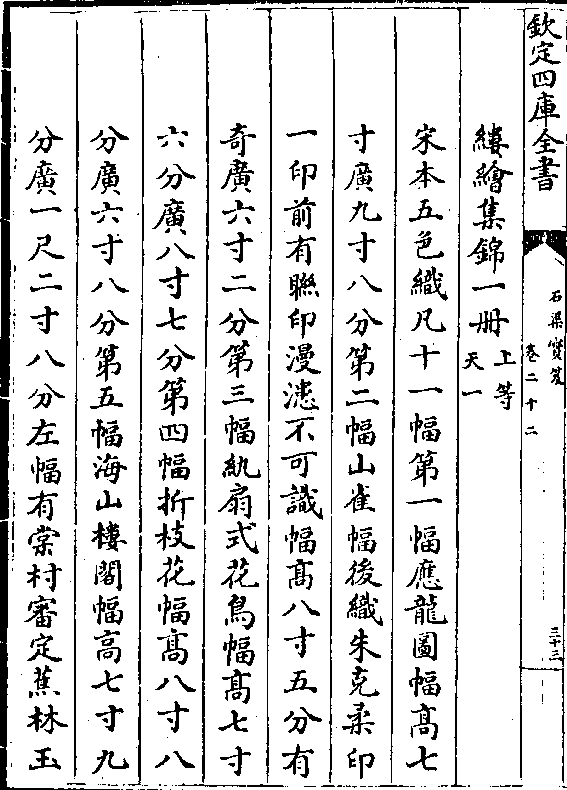 欽定四庫全書
石渠寳笈
卷二十二
三十三
縷繪集錦一冊
上等
天一
宋本五色織凡十一幅第一幅應龍圖幅髙七
寸廣九寸八分第二幅山雀幅後織朱克柔印
一印前有聨印漫漶不可識幅髙八寸五分有
奇廣六寸二分第三幅紈扇式花鳥幅髙七寸
六分廣八寸七分第四幅折枝花幅髙八寸八
分廣六寸八分第五幅海山樓閣幅高七寸九
分廣一尺二寸八分左幅有棠村審定蕉林玉